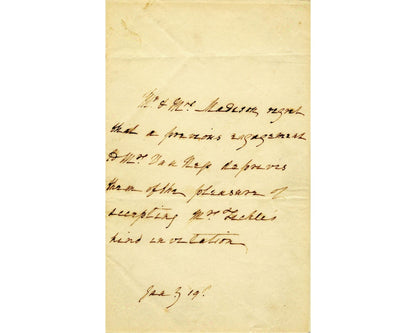 Mr & Mrs Madison regret
that a previous engagement
to Mrs. Van Ness deprives
them of the pleasure of
accepting Mrs Tuckle's
kind invitation
Jany 19.